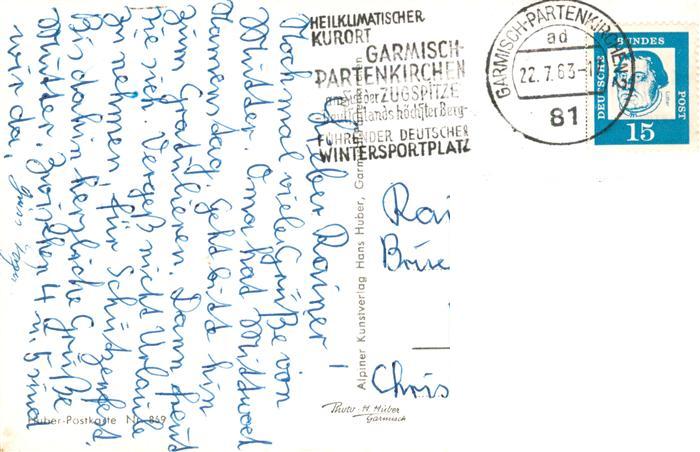 HEILKLIMATISCHER
KURORT
GARMISCH-
PARTENKIRCHEN
am Fuße der ZUGSPITZE
Deutschlands höchster Berg
FÜHRENDER DEUTSCHER
WINTERSPORTPLATZ
GARMISCH-PARTENKIRCHEN 2
ad
22.7.63-1
81
DEUTSCHE
BUNDES
POST
15
Lieber Rainer!
Nochmal viele Grüße von
Mutter. Oma hat Mittwoch
Namenstag. Geht alle hin
zum Gratulieren. Dann freut
sie sich. Vergeß nicht Urlaub
zu nehmen für Schützenfest.
Bis dahin herzliche Grüße
Mutter. Zwischen 4 u. 5 sind
wir da.
Gruß
Alpiner Kunstverlag Hans Huber, Garmisch-Partenkirchen
Rai
Chris
Photo-H. Huber
Garmisch
Huber-Postkarte Nr. 869